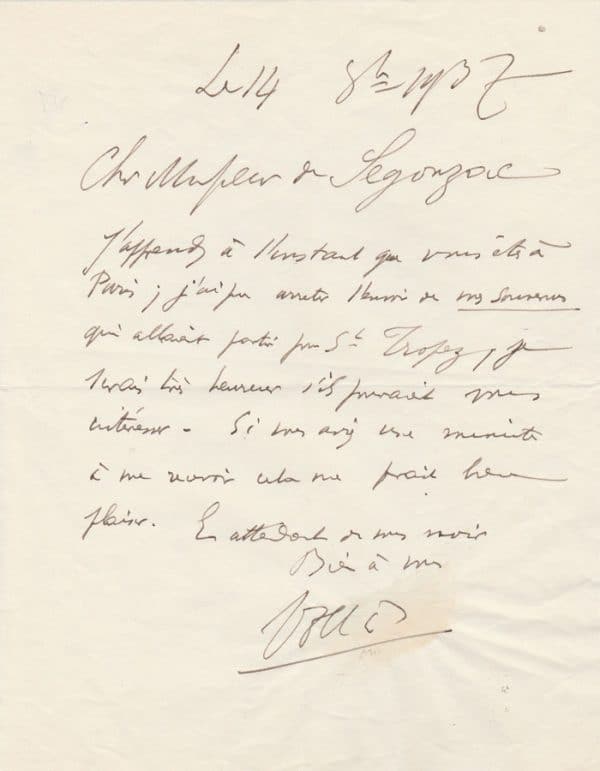 Le 14 8bre 1937
Cher Monsieur de Segonzac
J'apprends à l'instant que vous êtes à
Paris ; j'ai pu arreter l'envoi de mes souvenirs
qui allait partir pour St Tropez, je
serais très heureux s'ils pouvait vous
intéresser - Si vous avez une minute
à me recevoir cela me ferait bien
plaisir. En attendant de vous voir
Bien à vous